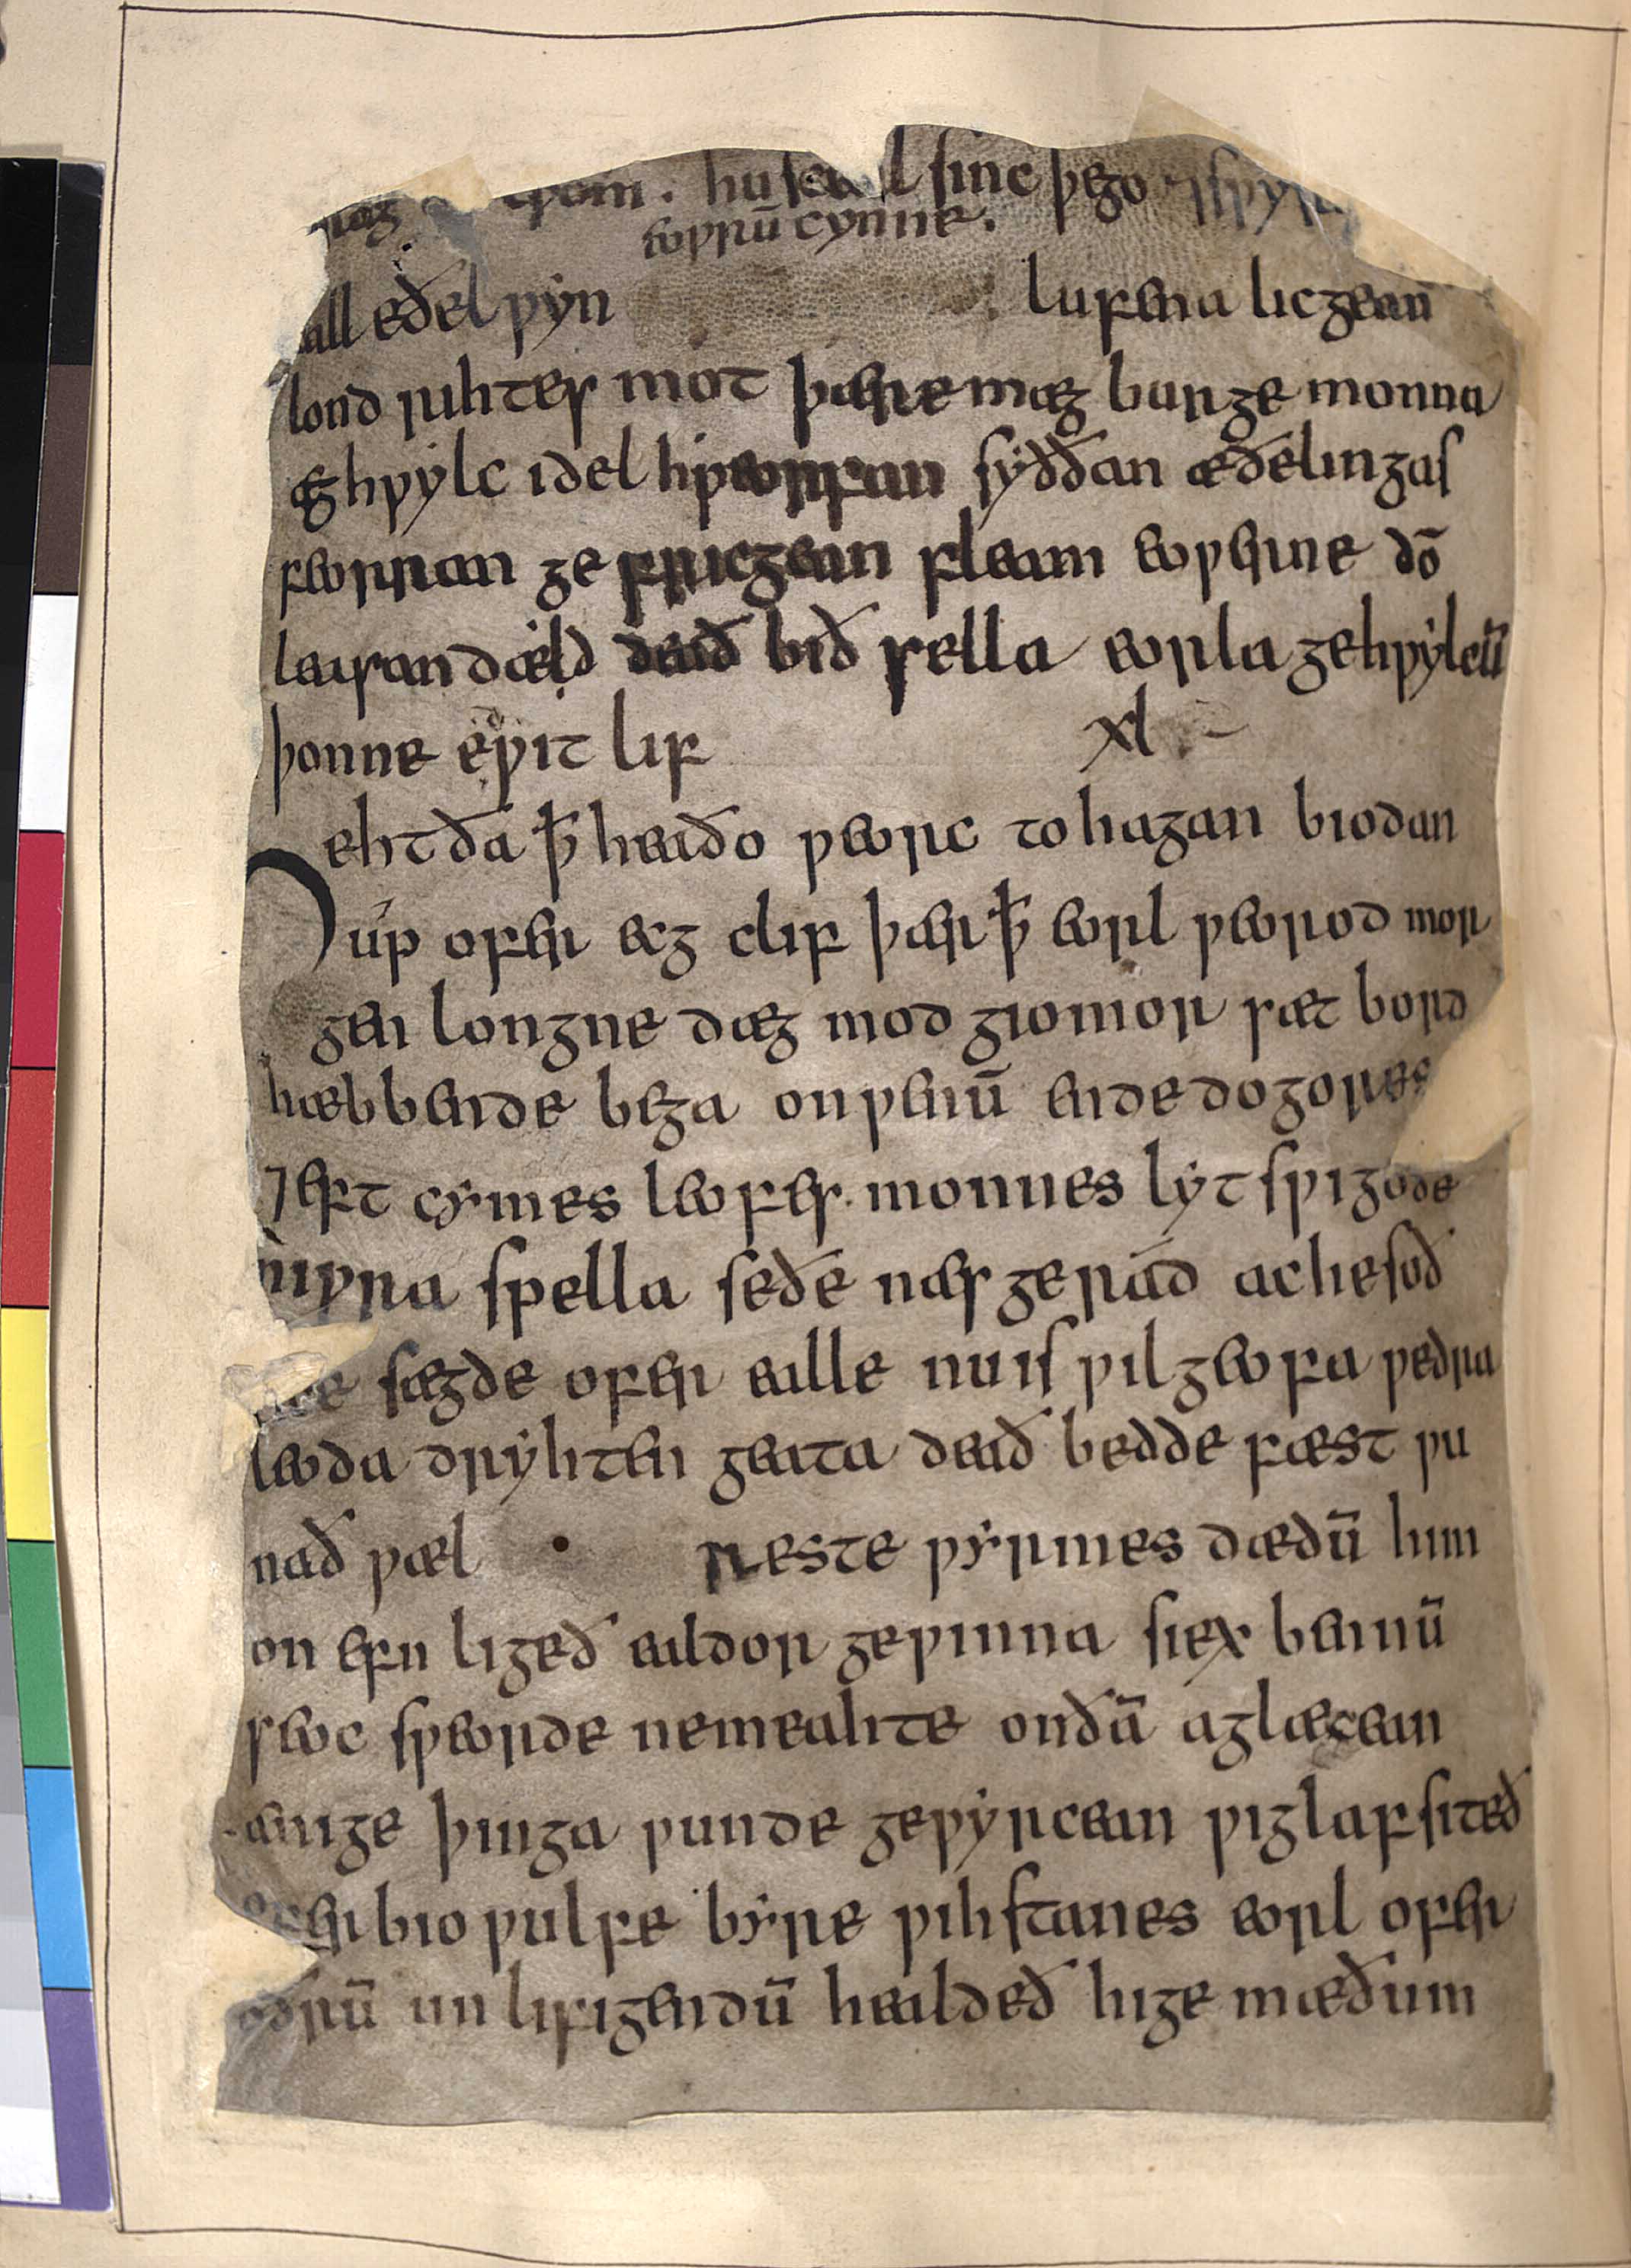 hu sceal sinc þego ⁊ spyrd
eoƿrū cynne.
all eðel ƿyn lufen alicgean
lond rihtes mot þære mæg burge monna
æghƿylc idel hƿeorfan syððan æðelingas
feorran ge fricgean fleam eoƿerne dō
leasan dæd deað bið sella eorla gehƿylcū
þonne edƿit lif xl
eht ða ꝥ heaðo ƿeorc to hagan biodan
úp ofer ecg clif þær ꝥ eorl ƿeorod mor
gen longne dæg mod giomor sæt bord
hæbbende bega on ƿenū ende dogores
⁊ eft cymes leofes monnes lyt sƿigode
niƿra spella se ðe næs gerád ac he soð
lice sægde ofer ealle nu is ƿil geofa ƿedra
leoda dryhten geata deað bedde fæst ƿu
nað ƿæl reste ƿyrmes dædū him
on efn ligeð ealdor geƿinna siex bennū
seoc sƿeorde ne meahte on ðā aglæcean
ænige þinga ƿunde geƿyrcean ƿiglaf siteð
ofer bioƿulfe byre ƿihstanes eorl ofer
oðrū un lifigendū healdeð hige mæðum